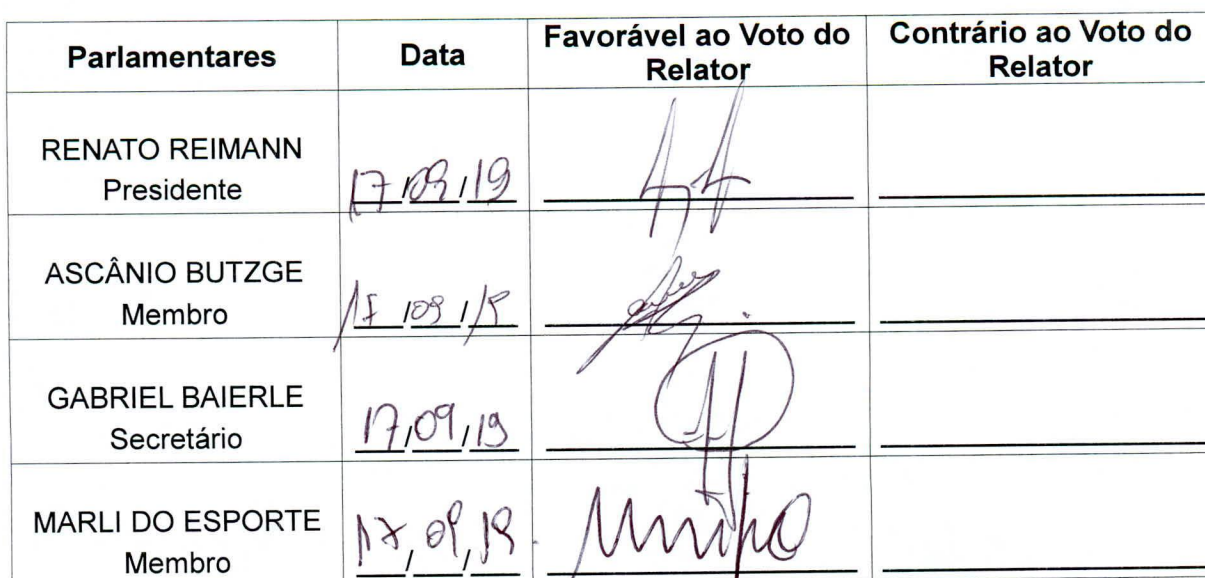 Parlamentares Data Favorável ao Voto do Relator Contrário ao Voto do Relator
RENATO REIMANN
Presidente 17/09/19
ASCÂNIO BUTZGE
Membro 17/09/19
GABRIEL BAIERLE
Secretário 17/09/19
MARLI DO ESPORTE
Membro 17/09/19